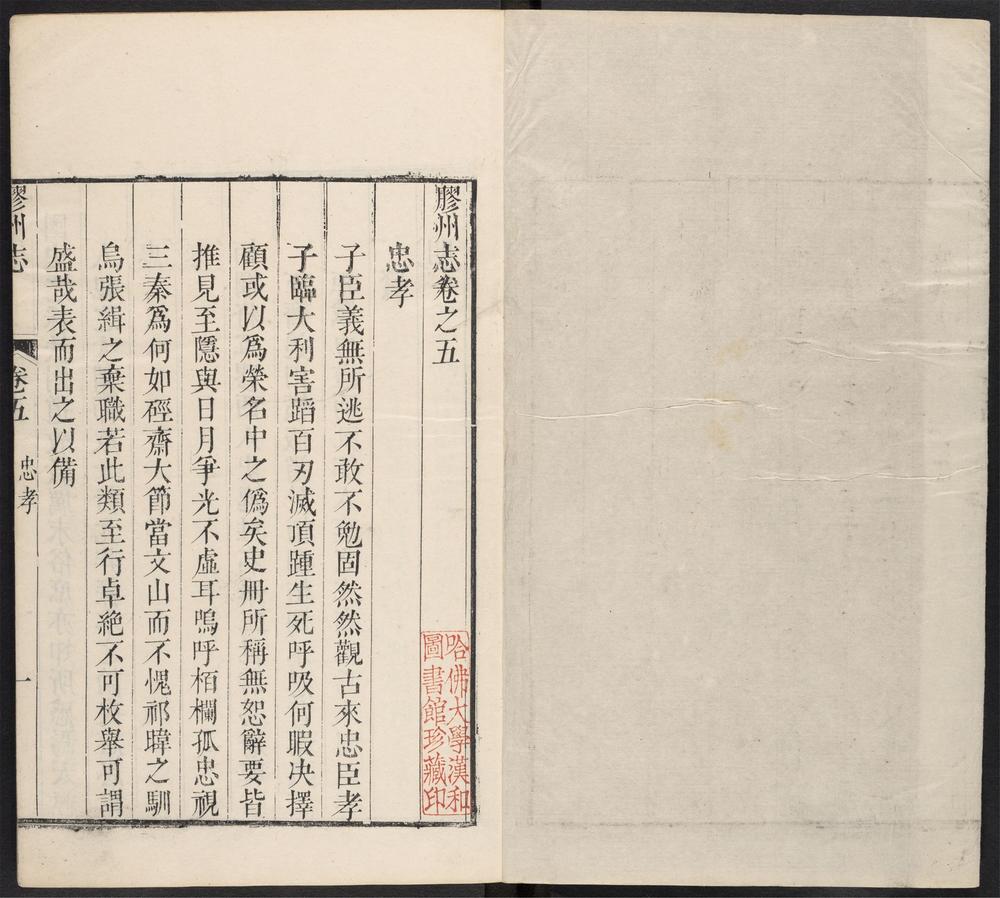 膠州志卷之五
忠孝
子臣義無所逃不敢不勉固然然觀古來忠臣孝
子臨大利害蹈百刃滅頂踵生死呼吸何暇决擇
顧或以爲榮名中之僞矣史冊所稱無恕辭要皆
推見至隱與日月爭光不虛耳嗚呼栢欄孤忠視
三秦爲何如硜齋大節當文山而不愧祁暐之馴
烏張緝之棄職若此類至行卓絶不可枚舉可謂
盛哉表而出之以備
膠州志
卷五
忠孝
一
哈佛大學漢和
圖書館珍藏印